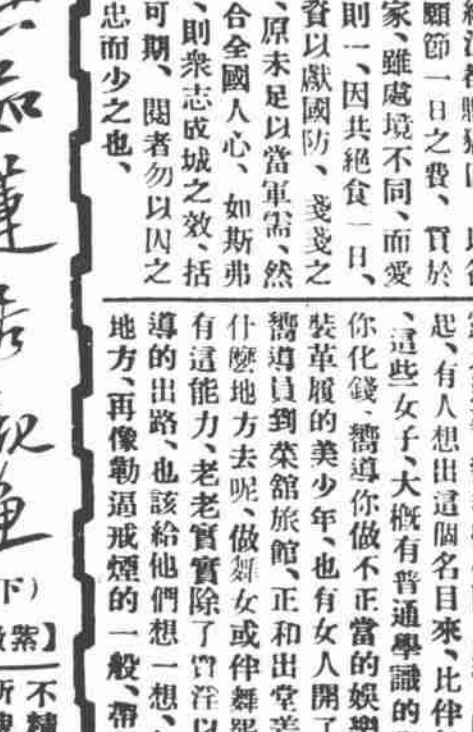 願節一日之費、實於
家、雖處境不同、而愛
則一、因共絕食一日、
資以獻國防、戔戔之
、原未足以當軍需、然
合全國人心、如斯弗
、則衆志成城之效、括
可期、閱者勿以囚之
忠而少之也、
起、有人想出這個名目來、比伴
、這些女子、大概有普通學識的
你化錢、嚮導你做不正當的娛樂
裝革履的美少年、也有女人開了
嚮導員到菜舘旅館、正和出堂差
什麽地方去呢、做舞女或伴舞罷
有這能力、老老實實除了賣淫以
導的出路、也該給他們想一想、
地方、再像勒逼戒煙的一般、帶
下）
不精